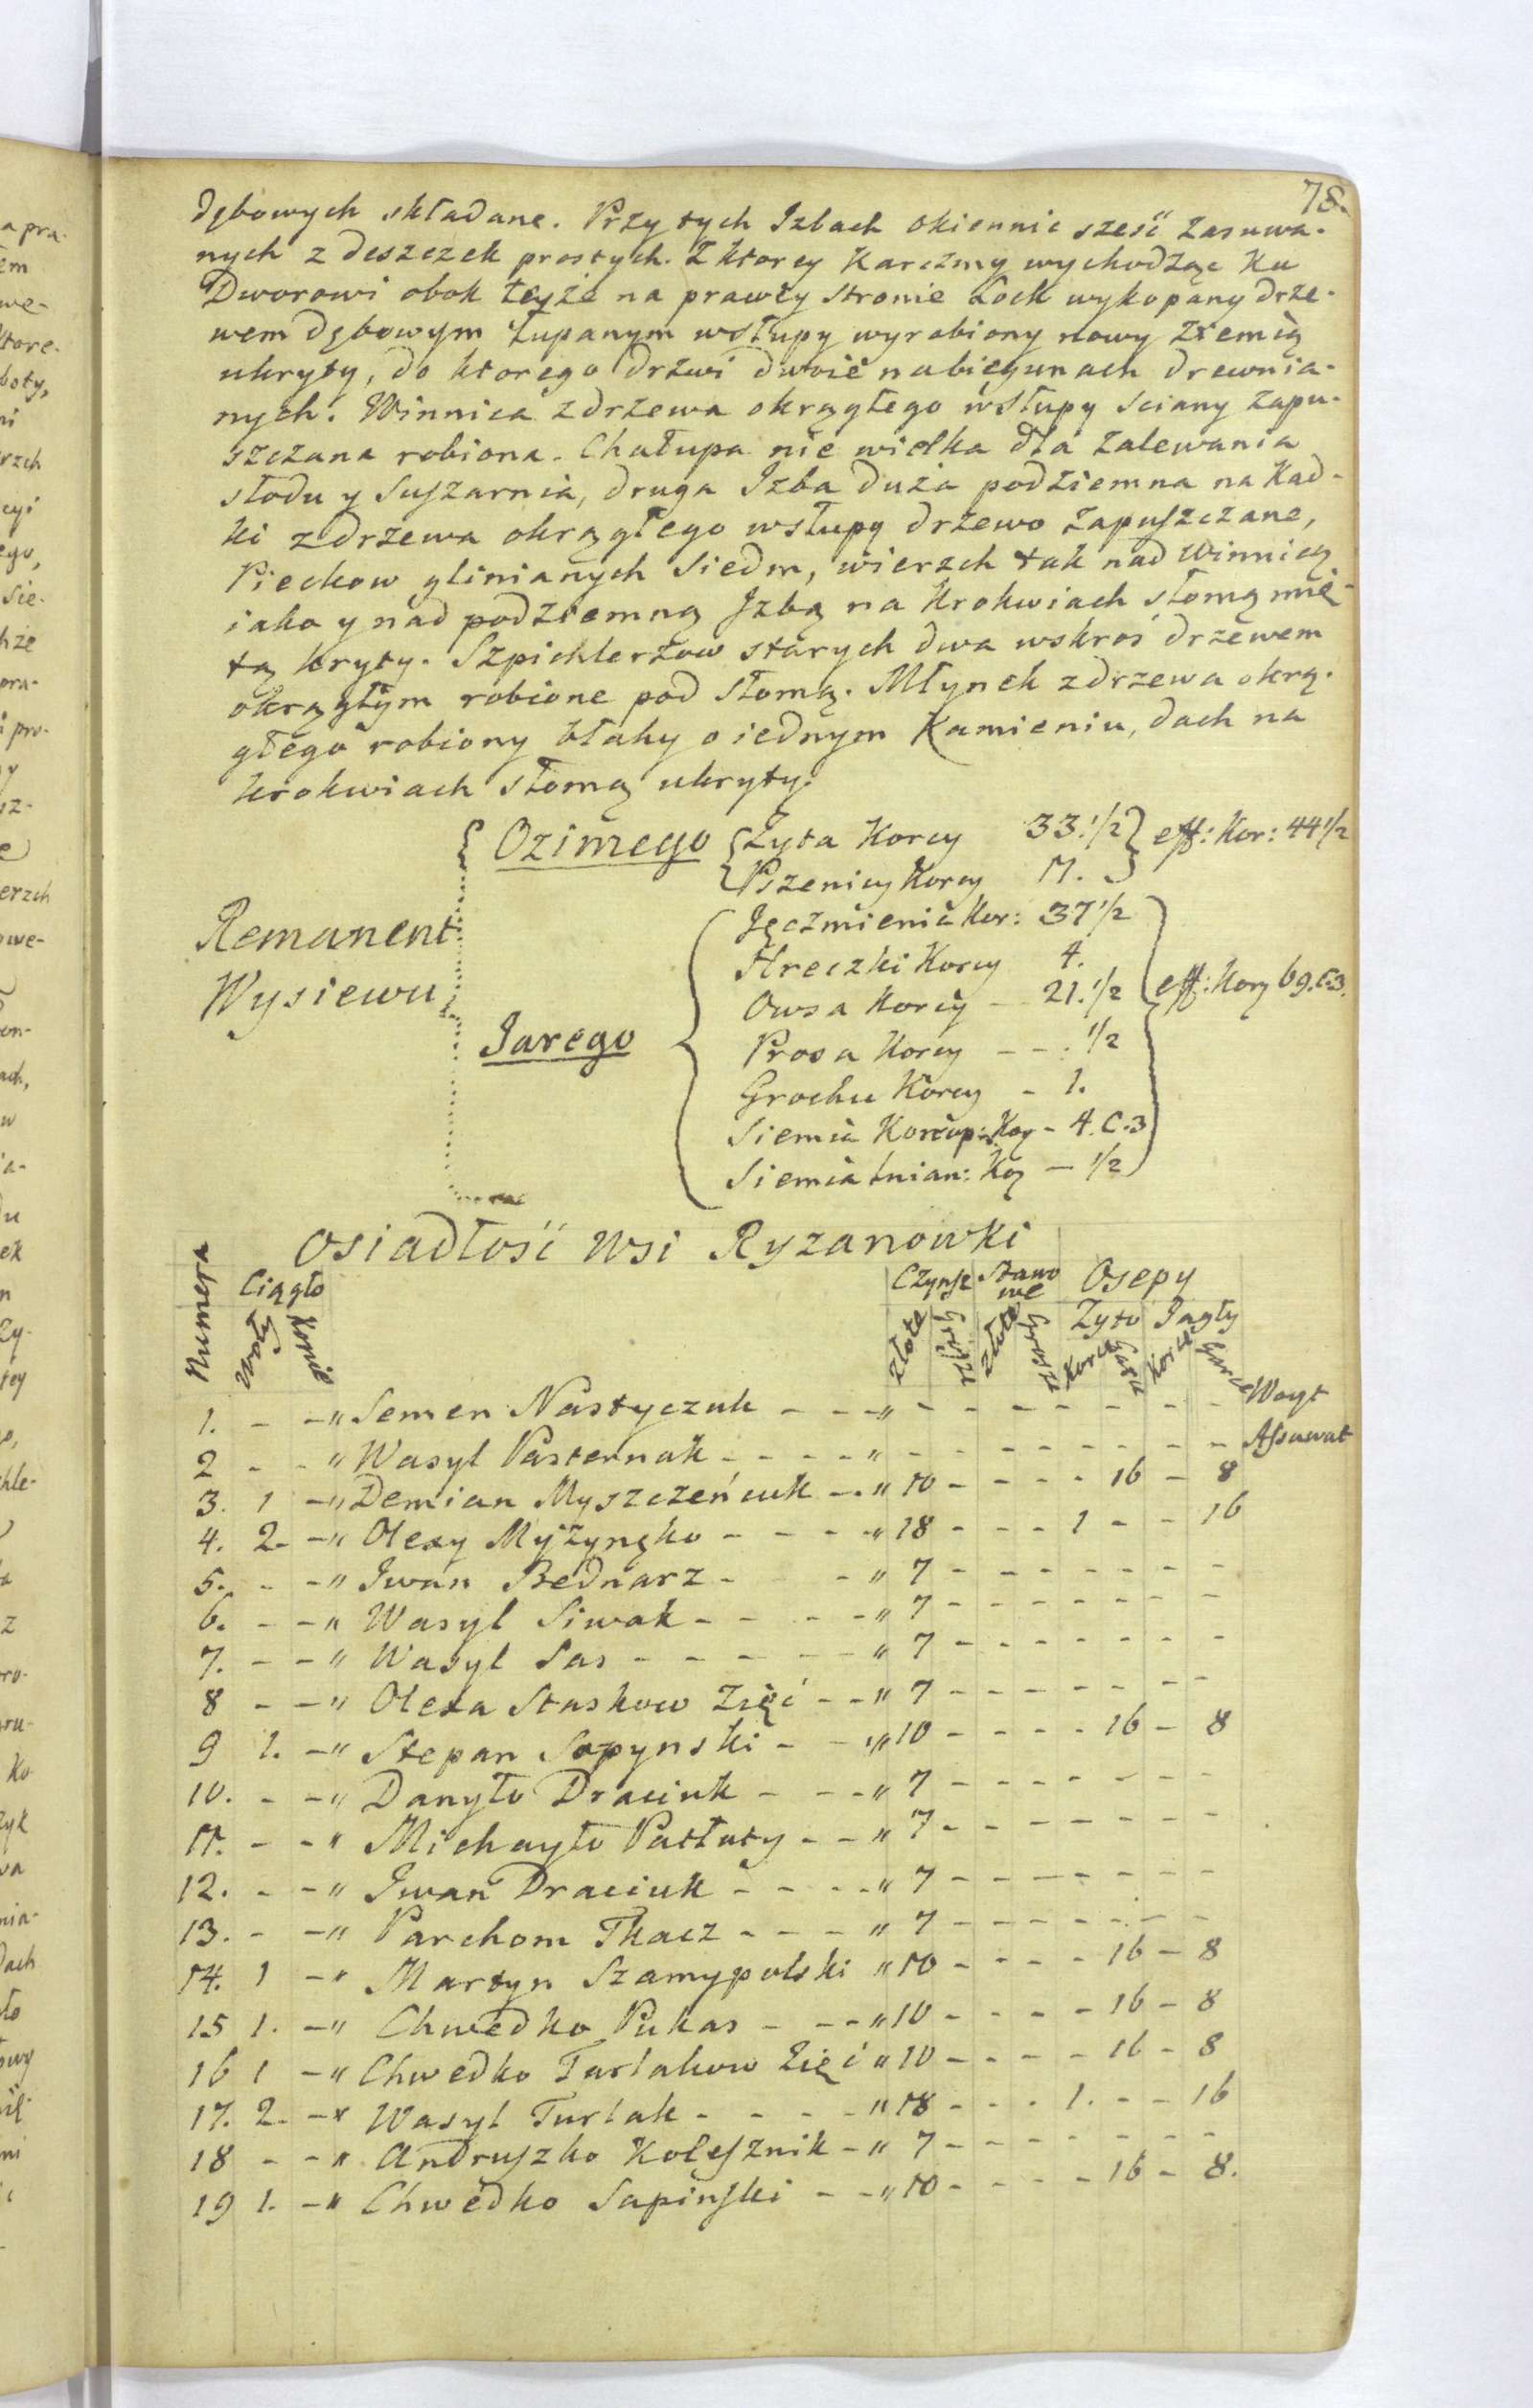 78.
dębowych składane. Przy tych Izbach okiennic sześć zasuwa-
nych z deszczek prostych. Z ktorey Karczmy wychodząc ku
Dworowi obok teyże na prawey stronie Loch wykopany drze-
wem dębowym łupanym wsłupy wyrobiony nowy ziemią
ukryty, do ktorego drzwi dwoie nabiegunach drewnia-
nych. Winnica zdrzewa okrągłego wsłupy sciany zapu-
szczana robiona. Chałupa nie wielka dla zalewania
słodu y suszarnia, druga Izba duża podziemna na Kad-
ki zdrzewa okrągłego wsłupy drzewo zapuszczane,
Pieckow glinianych siedm, wierzch tak nad winnicą
iako y nad podziemną Izbą na Krokwiach słomą mię-
tą kryty. Szpichlerzow starych dwa wskroś drzewem
okrągłym robione pod słomą. Młynek zdrzewa okrą-
głego robiony błahy o iednym Kamieniu, dach na
krokwiach słomą ukryty.
Remanent Wysiewu
Ozimego
Żyta Korcy 33.1/2
Pszenicy Korcy 11.
eff: Kor: 44 1/2
Jarego
Jęczmienia Kor: 37 1/2
Hreczki Korcy 4.
Owsa Korcy - 21.1/2
Prosa Korcy - - . 1/2
Grochu Korcy - 1.
Siemia Konop: Kor - 4. C. 3
Siemia lnian: Kor - 1/2
eff: Kor 69. C.3.
Osiadłość Wsi Ryzanowki
Numera Ciągło Czynsz Stawowe Osepy
Woły Konie Złote Grosze Złote Grosze Żyto Jagły
Korce Garce Korce Garce
1. - - " Semen Nastyczuk - - - " - - - - - - - - Woyt
2 - - " Wasyl Pasternak - - - - " - - - - - - - - Assawuł
3. 1 - " Demian Myszczeńcuk - - " 10 - - - - 16 - 8
4. 2. - " Olexy Myżynęko - - - - " 18 - - - 1 - - 16
5. - - " Iwan Bednarz - - - " 7 - - - - - - -
6. - - " Wasyl Siwak - - - - - " 7 - - - - - - -
7. - - " Wasyl Sas - - - - - " 7 - - - - - - -
8 - - " Olexa Staskow Zięć - - " 7 - - - - - - -
9 1. - " Stepan Sapynski - - " 10 - - - - 16 - 8
10. - - " Danyło Draciuk - - - " 7 - - - - - - -
11. - - " Michayło Patłaty - - " 7 - - - - - - -
12. - - " Iwan Draciuk - - - - " 7 - - - - - - -
13. - - " Parchom Tkacz - - - " 7 - - - - - - -
14. 1 - " Martyn Szamypolski " 10 - - - - 16 - 8
15 1. - " Chwedko Pukas - - - " 10 - - - - 16 - 8
16 1 - " Chwedko Turlakow Zięć " 10 - - - - 16 - 8
17. 2. - " Wasyl Turlak - - - - " 18 - - - 1. - - 16
18 - - " Andruszko Kolesznik - " 7 - - - - - - -
19 1. - " Chwedko Sapinski - - " 10 - - - - 16 - 8.